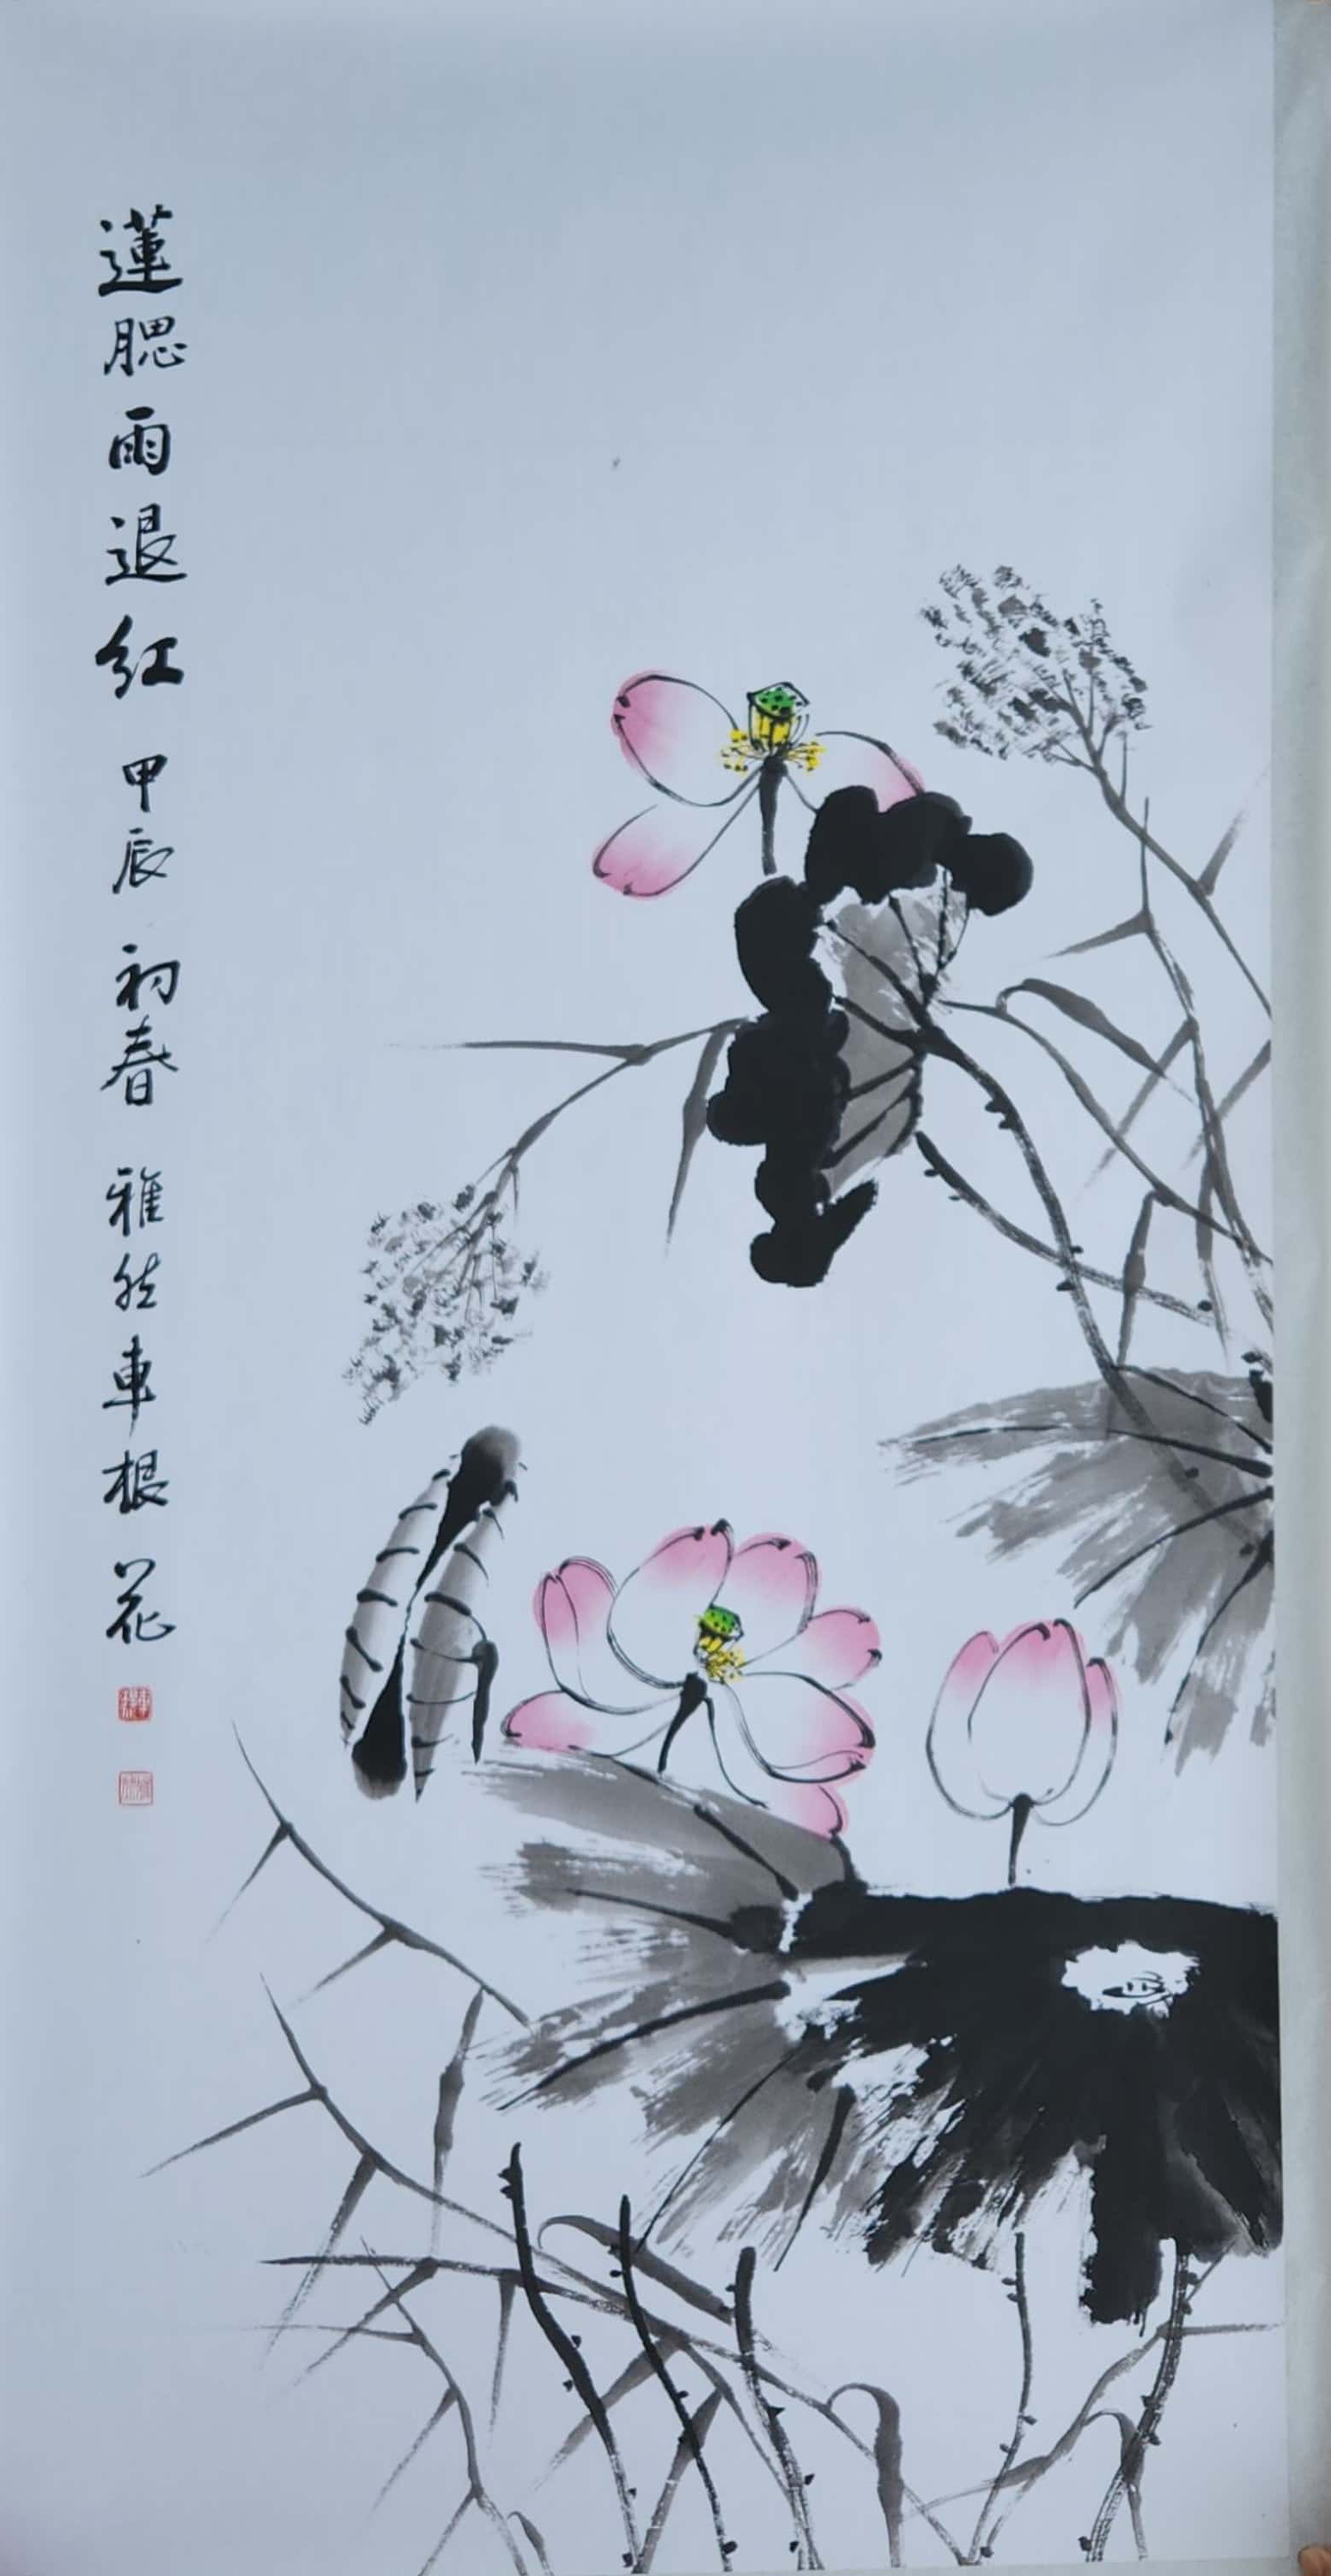 蓮腮雨退红 甲辰 初春 雅然車根花